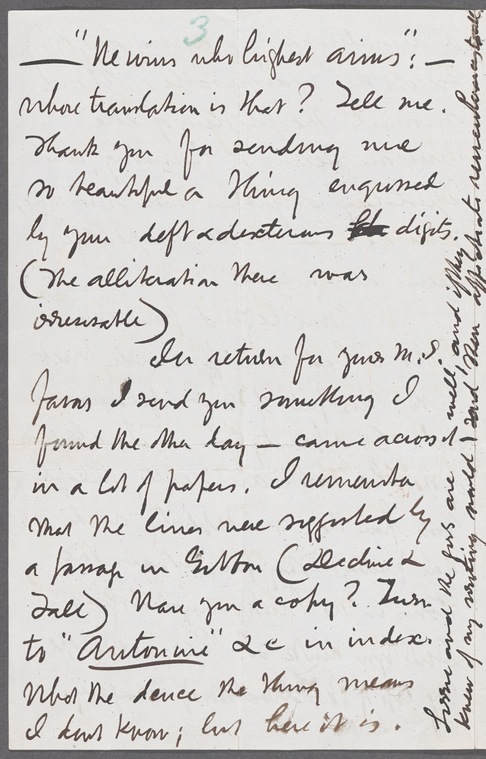 3
— "He wins who highest aims": —
whose translation is that? Tell me.
Thank you for sending me
so beautiful a thing engrossed
by your deft & dexterous digits.
(The alliteration there was
irresistable)
In return for your M.S.
favor I send you something I
found the other day — came across it
in a lot of papers. I remember
that the lines were suggested by
a passage in Gibbon (Decline &
Fall) Have you a copy? Turn
to "Antonine" &c in index.
What the deuce the thing means
I don't know; but here it is.
and the girls are well, and if they
knew of my writing would send then affectionate remembrances